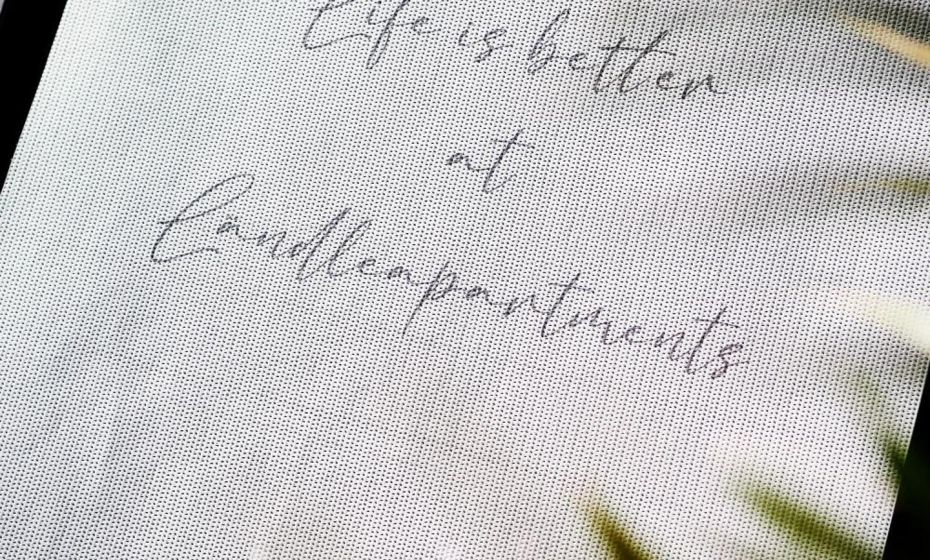 Life is better
at
Landleapartments